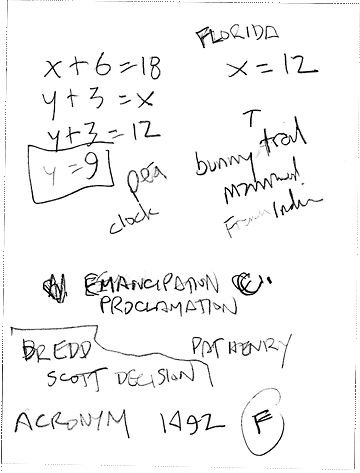 FLORIDA
x + 6 = 18
x = 12
y + 3 = x
y + 3 = 12
y = 9
pea
clock
T
bunny trail
French India
EMANCIPATION C.
PROCLAMATION
DREDD
PAT HENRY
SCOTT DECISION
ACRONYM 1492 F